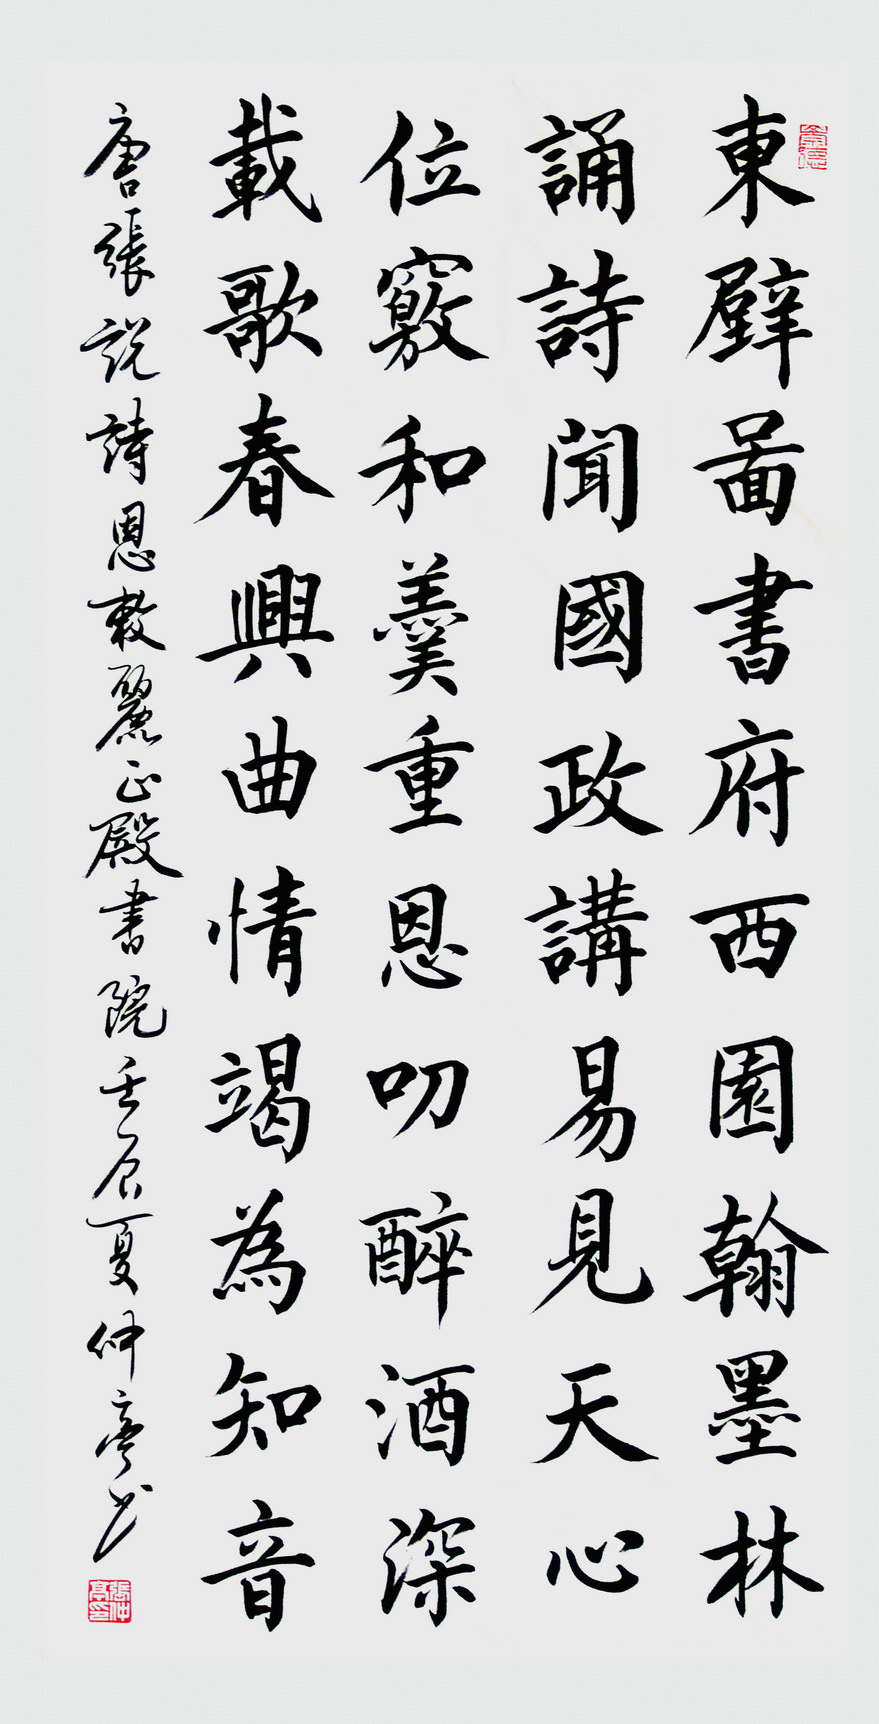 東壁啚書府西園翰墨林
誦詩聞國政講易見天心
位竅和羹重恩叨醉酒深
載歌春興曲情竭為知音
唐張説詩恩敕麗正殿書院壬辰夏仲亭书